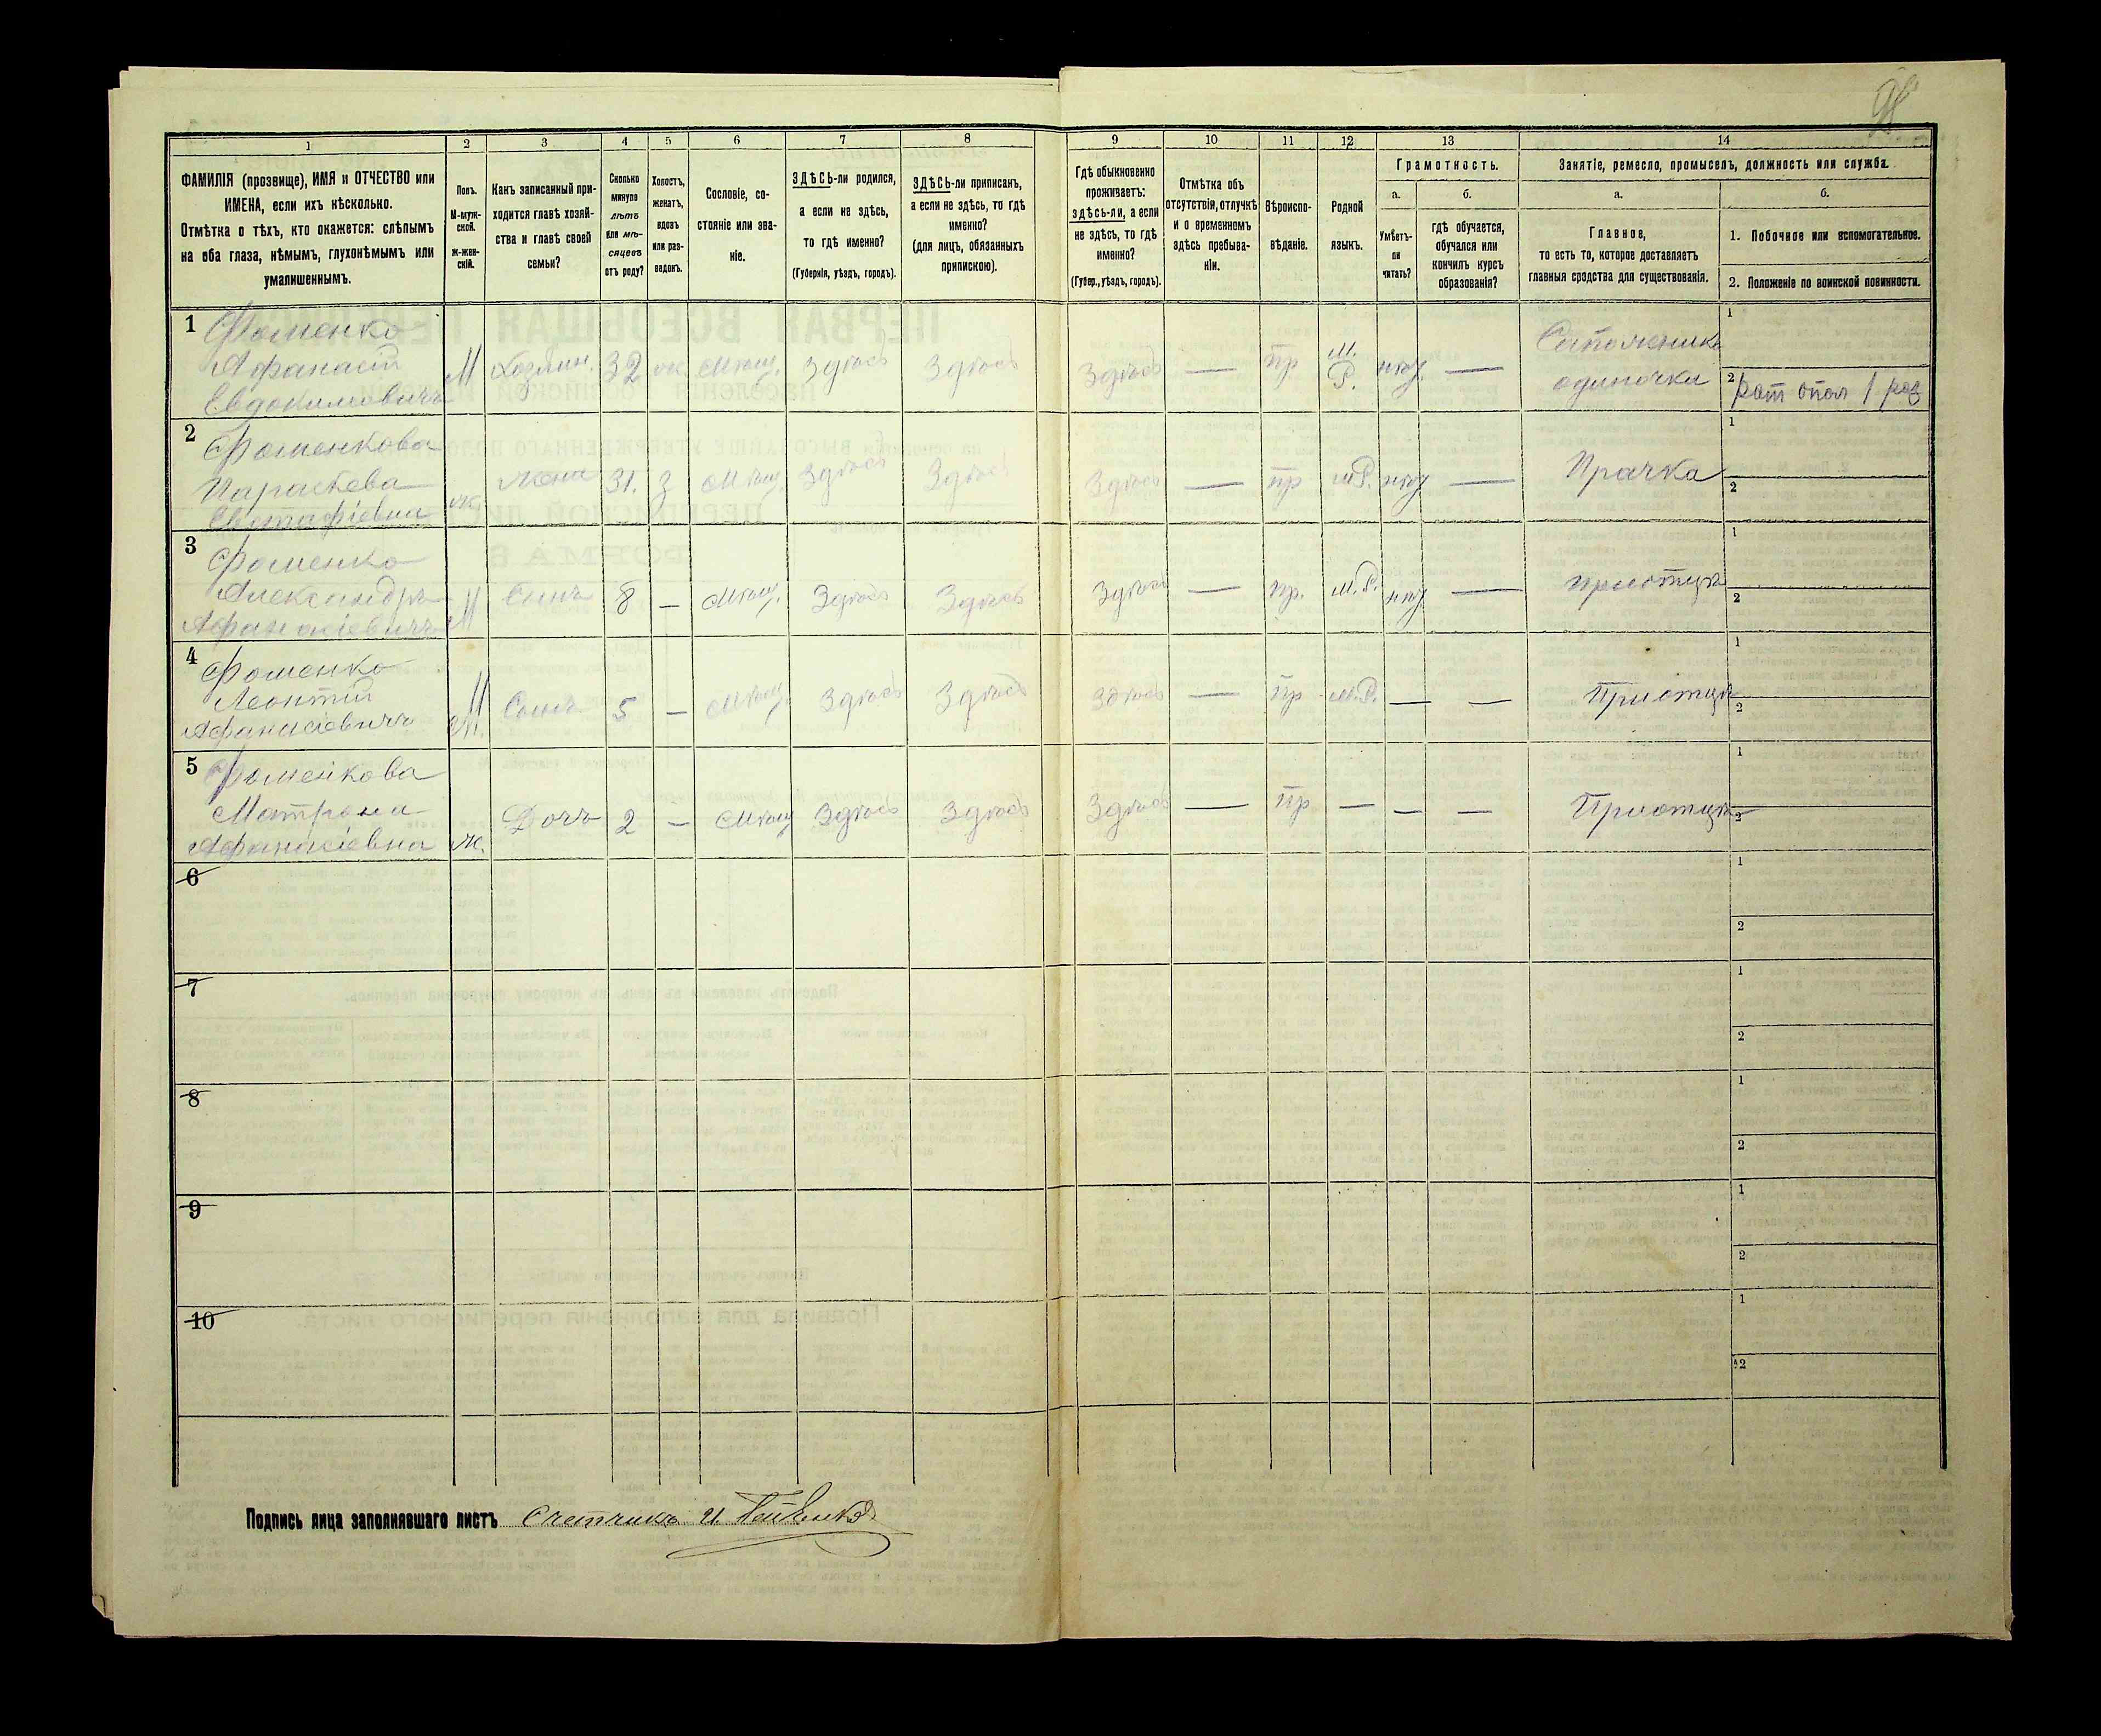 98
1 2 3 4 5 6 7 8 9 10 11 12 13 14
ФАМИЛІЯ (прозвище), ИМЯ и ОТЧЕСТВО или
ИМЕНА, если ихъ нѣсколько.
Отмѣтка о тѣхъ, кто окажется: слѣпымъ
на оба глаза, нѣмымъ, глухонѣмымъ или
умалишеннымъ.
Полъ.
М-муж-
ской.
Ж-жен-
скій.
Какъ записанный при-
ходится главѣ хозяй-
ства и главѣ своей
семьи?
Сколько
минуло
лѣтъ
или мѣ-
сяцевъ
отъ роду?
Холостъ,
женатъ,
вдовъ
или раз-
веденъ.
Сословіе, со-
стояніе или зва-
ніе.
ЗДѢСЬ-ли родился,
а если не здѣсь,
то гдѣ именно?
(Губернія, уѣздъ, городъ).
ЗДѢСЬ-ли приписанъ,
а если не здѣсь, то гдѣ
именно?
(для лицъ, обязанныхъ
припискою).
Гдѣ обыкновенно
проживаетъ:
здѣсь-ли, а если
не здѣсь, то гдѣ
именно?
(Губер., уѣздъ, городъ).
Отмѣтка объ
отсутствіи, отлучкѣ
и о временномъ
здѣсь пребыва-
ніи.
Вѣроиспо-
вѣданіе.
Родной
языкъ.
Грамотность.
а.
Умѣетъ-
ли
читать?
б.
гдѣ обучается,
обучался или
кончилъ курсъ
образованія?
Занятіе, ремесло, промыселъ, должность или служба.
а.
Главное,
то есть то, которое доставляетъ
главныя средства для существованія.
б.
1. Побочное или вспомогательное.
2. Положеніе по воинской повинности.
1 Фоменко
Афанасій
Евдокимовичъ
М Хозяин. 32 ж. Мѣщ. Здѣсь Здѣсь Здѣсь — пр М. Р. нѣт. —
Сапожникъ
одиночка
1
2 рат опол 1 раз
2 Фоменкова
Параскева
Евстафіевна
ж. жена 31. З Мѣщ. Здѣсь Здѣсь Здѣсь — пр м.Р. нѣт — Прачка
1
2
3 Фоменко
Александръ
Афанасіевичъ
М Сынъ 8 — Мѣщ. Здѣсь Здѣсь Здѣсь — пр. м.Р. нѣт — приотцѣ
1
2
4 Фоменко
Леонтій
Афанасіевичъ
М. Сынъ 5 — Мѣщ. Здѣсь Здѣсь Здѣсь — пр м.Р. — — Приотцѣ
1
2
5 Фоменкова
Матрона
Афанасіевна
ж. Дочь 2 — Мѣщ Здѣсь Здѣсь Здѣсь — пр — — — Приотцѣ
1
2
6
1
2
7
1
2
8
1
2
9
1
2
10
1
2
Подпись лица заполнявшаго листъ Счетчикъ И.